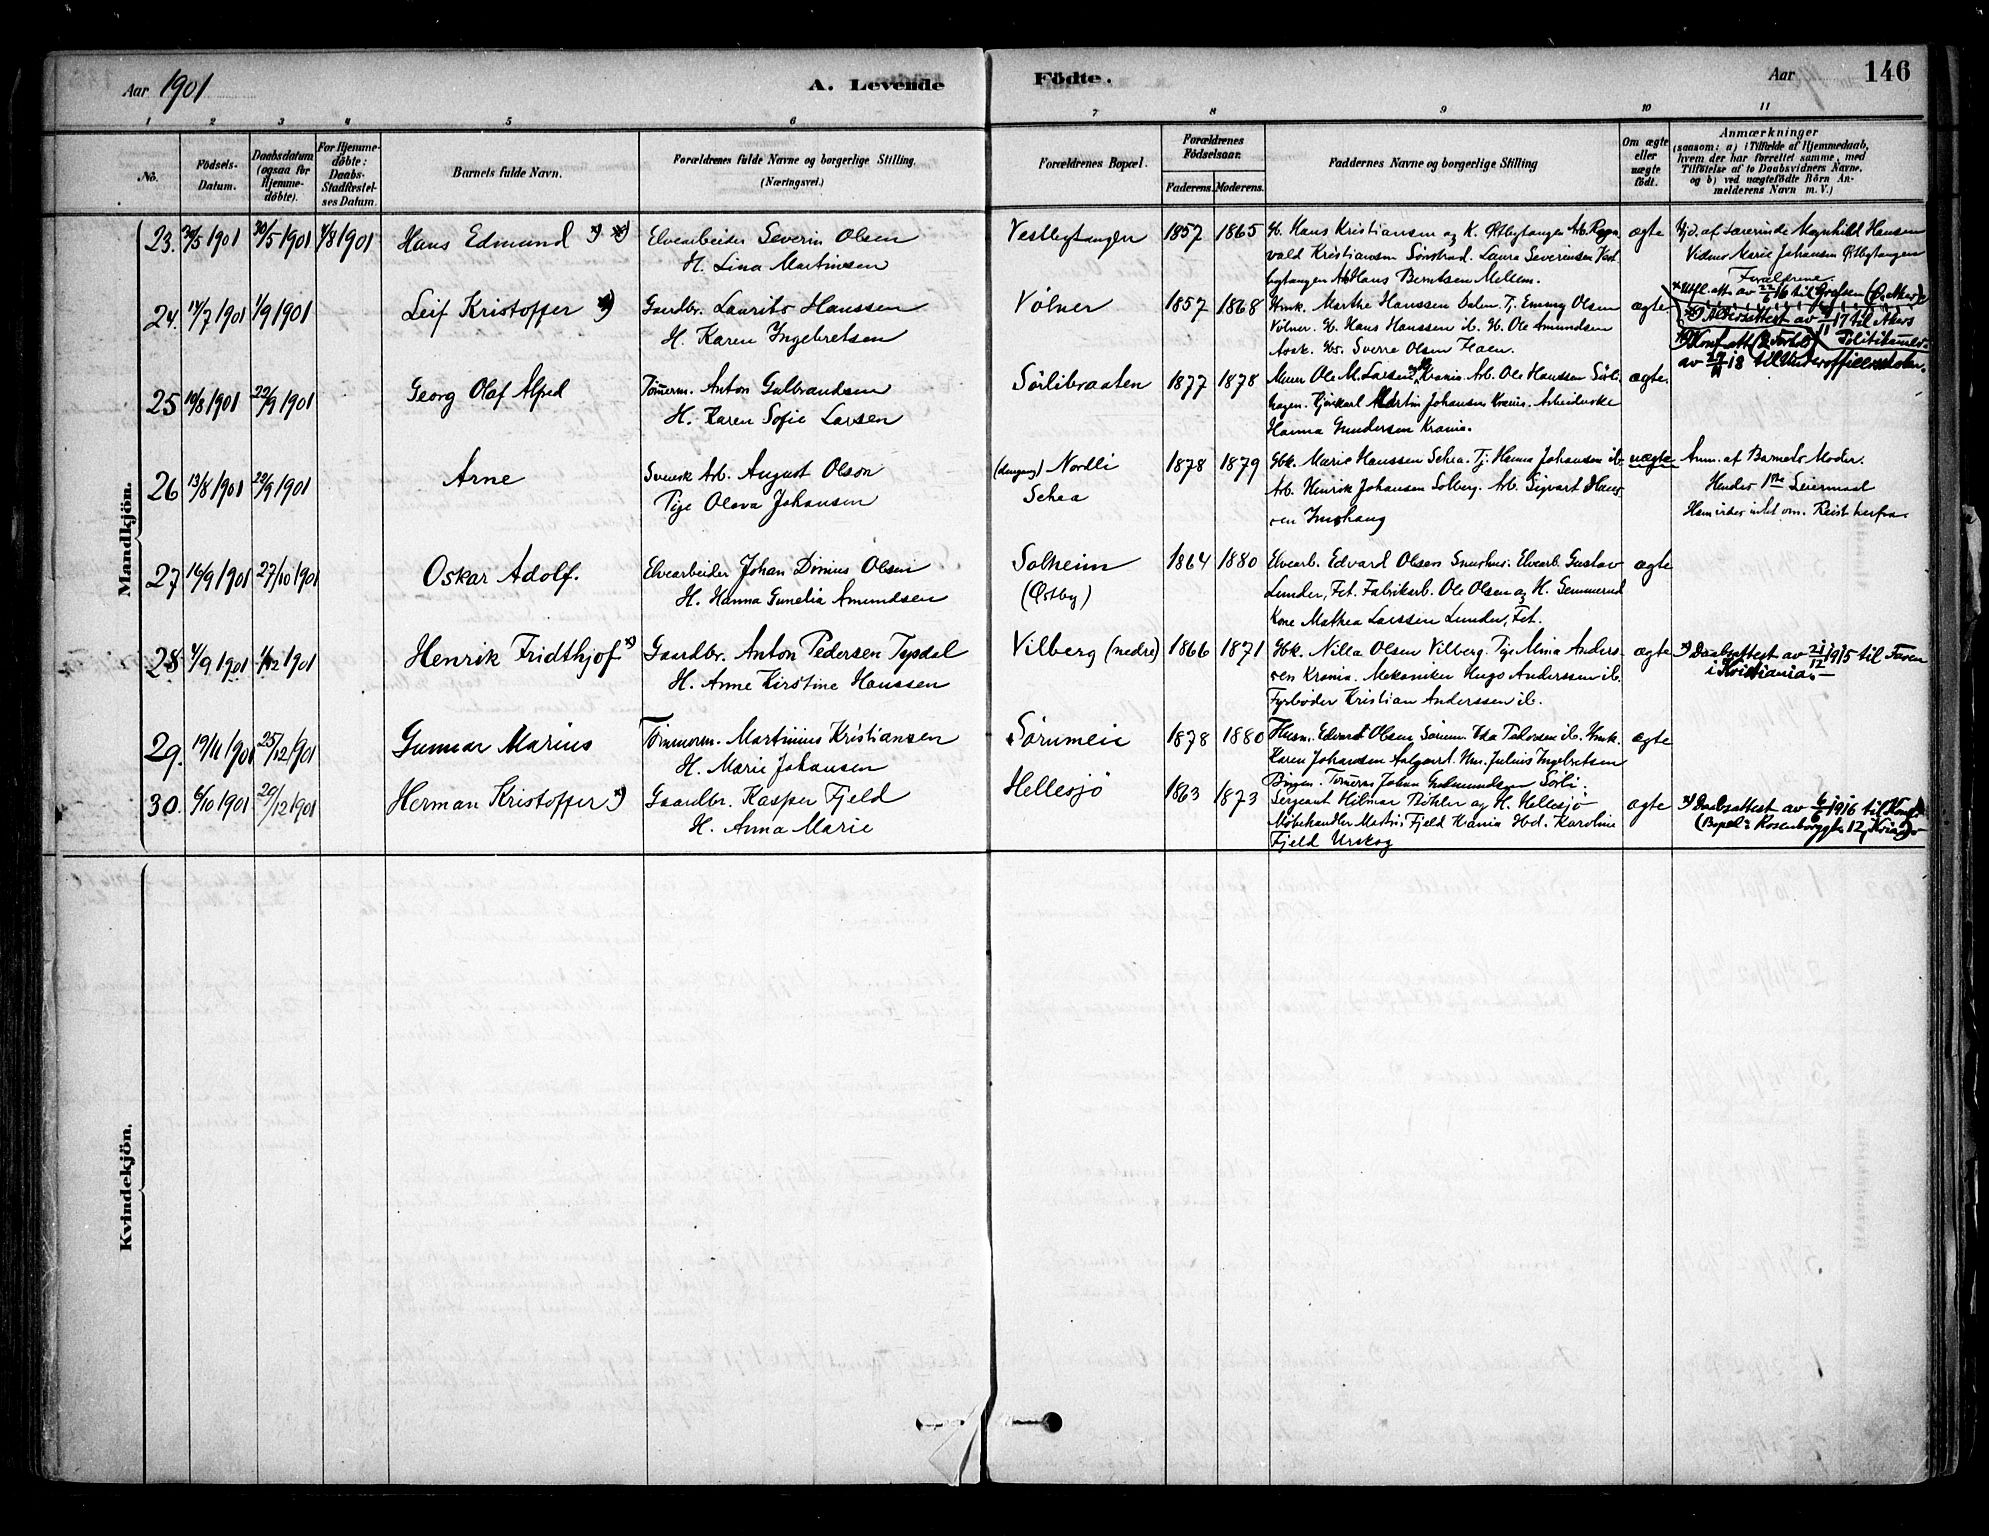 Aar 1901
A. Levende
Födte.
Aar
146
1 2 3 4 5 6 7 8 9 10 11
No.
Födsels-
Datum.
Daabsdatum
(ogsaa for
Hjemme-
döbte).
For Hjemme-
döbte:
Daabs-
Stadfæstel-
ses Datum.
Barnets fulde Navn.
Forældrenes fulde Navne og borgerlige Stilling.
(Næringsvei.)
Forældrenes Bopæl.
Forældrenes
Födselsaar.
Faderens. Moderens.
Faddernes Navne og borgerlige Stilling
Om ægte
eller
uægte
födt.
Anmærkninger
(saasom: a) i Tilfælde af Hjemmedaab,
hvem der har forrettet samme, med
Tilföielse af to Daabsvidners Navne,
og b) ved uægtefödte Börn An-
melderens Navn m. V.)
Mandkjön.
23. 30/5 1901 4/8 1901 Hans Edmund
Elvearbeider Severin Olsen
H. Lina Martinsen
Vestbytangen 1857 1865
Gb. Hans Kristiansen og K. Østbytangen Arb. Ragn
vald Kristiansen Laura Severinsen Vest
bytangen Arb. Hans Berntsen Mellem.
ægte
Hjd. af Lærerinde Magnhild Hansen
Vidner Marie Johansen Østbytangen
Forældrene
24. 14/7 1901 1/9 1901 Leif Kristoffer
Gaardbr. Laurits Hanssen
H. Karen Ingebretsen
Vølner 1857 1868
Enk. Marthe Hanssen Dalen. Tj. Emma Olsen
Vølner. Gb. Hans Hanssen ib. Gb. Ole Amundsen
Aosk. Gbs. Sverre Olsen Haen.
ægte
til Akers
Politikammer
til Underofficerskolen.
25 19/8 1901 22/9 1901 Georg Olaf Alfred
Tömmerm. Anton Gulbrandsen
H. Karen Sofie Larsen
Sørlibraaten 1877 1878
Murer Ole M. Larsen Krania. Arb. Ole Hanssen Sörli
hagen. Martin Johansen Krania. Arbeiderske
Hanna Gundersen Krania.
ægte.
26 13/8 1901 22/9 1901 Arne
Svensk Arb. August Olson
Pige Olava Johansen
Nordli
Sehea
1878 1879
Gbk. Marie Hanssen Sehea. Tj. Hanna Johansen ib
Arb. Henrik Johansen Solberg. Arb. Sigvart Hans
sen Imshaug
uægte
Anm. af Barnets Moder.
Hendes 1ste Leiermaal
27 16/9 1901 27/10 1901 Oskar Adolf.
Elvearbeider Johan Dinius Olsen
H. Hanna Gunelia Amundsen
Solheim
(Østby)
1864 1880
Elvearb. Edvard Olsen Snushus. Elvearb. Gustav
Lunder, Fet. Fabrikarb. Ole Olsen og H. Gemmerud
Kone Mathea Larssen Lunder, Fet.
ægte
28 4/9 1901 1/12 1901 Henrik Fridthjof
Gaardbr. Anton Pedersen Tysdal
H. Anne Kirstine Hanssen
Vilberg (nedre) 1866 1871
Gbk. Nilla Olsen Vilberg. Pige Alma Anders
sen Krania. Mekaniker Hugo Anderssen ib.
Fyrböder Kristian Anderssen ib.
ægte
*) Daabsattest av 21/12 1915 til Faren
i Kristiania.
29. 19/11 1901 25/12 1901 Gunnar Marius
Tömmerm. Martinius Kristiansen
H. Marie Johansen
Sørumeie 1878 1880
Husm. Edvard Olsen Sørum. Ida Palersen ib. Enk.
Karen Johansen Aalgaard. Um. Julius Ingebretsen
Bingen. Tömerm Johan Gudmundsen Sörli.
ægte
30. 6/10 1901 29/12 1901 Herman Kristoffer
Gaardbr. Kasper Fjeld
H. Anna Marie
Hellesjö 1863 1873
Sergeant Hilmar Böhler og H. Hellesjö
Möbelhandler Matis Fjeld Krania Gbd. Karoline
Fjeld Urskog
ægte
*) Daabsattest av 6/6 1916 til Konf.
(Bopel: Rosenborggt. 12, Kria)
Kvindekjön.